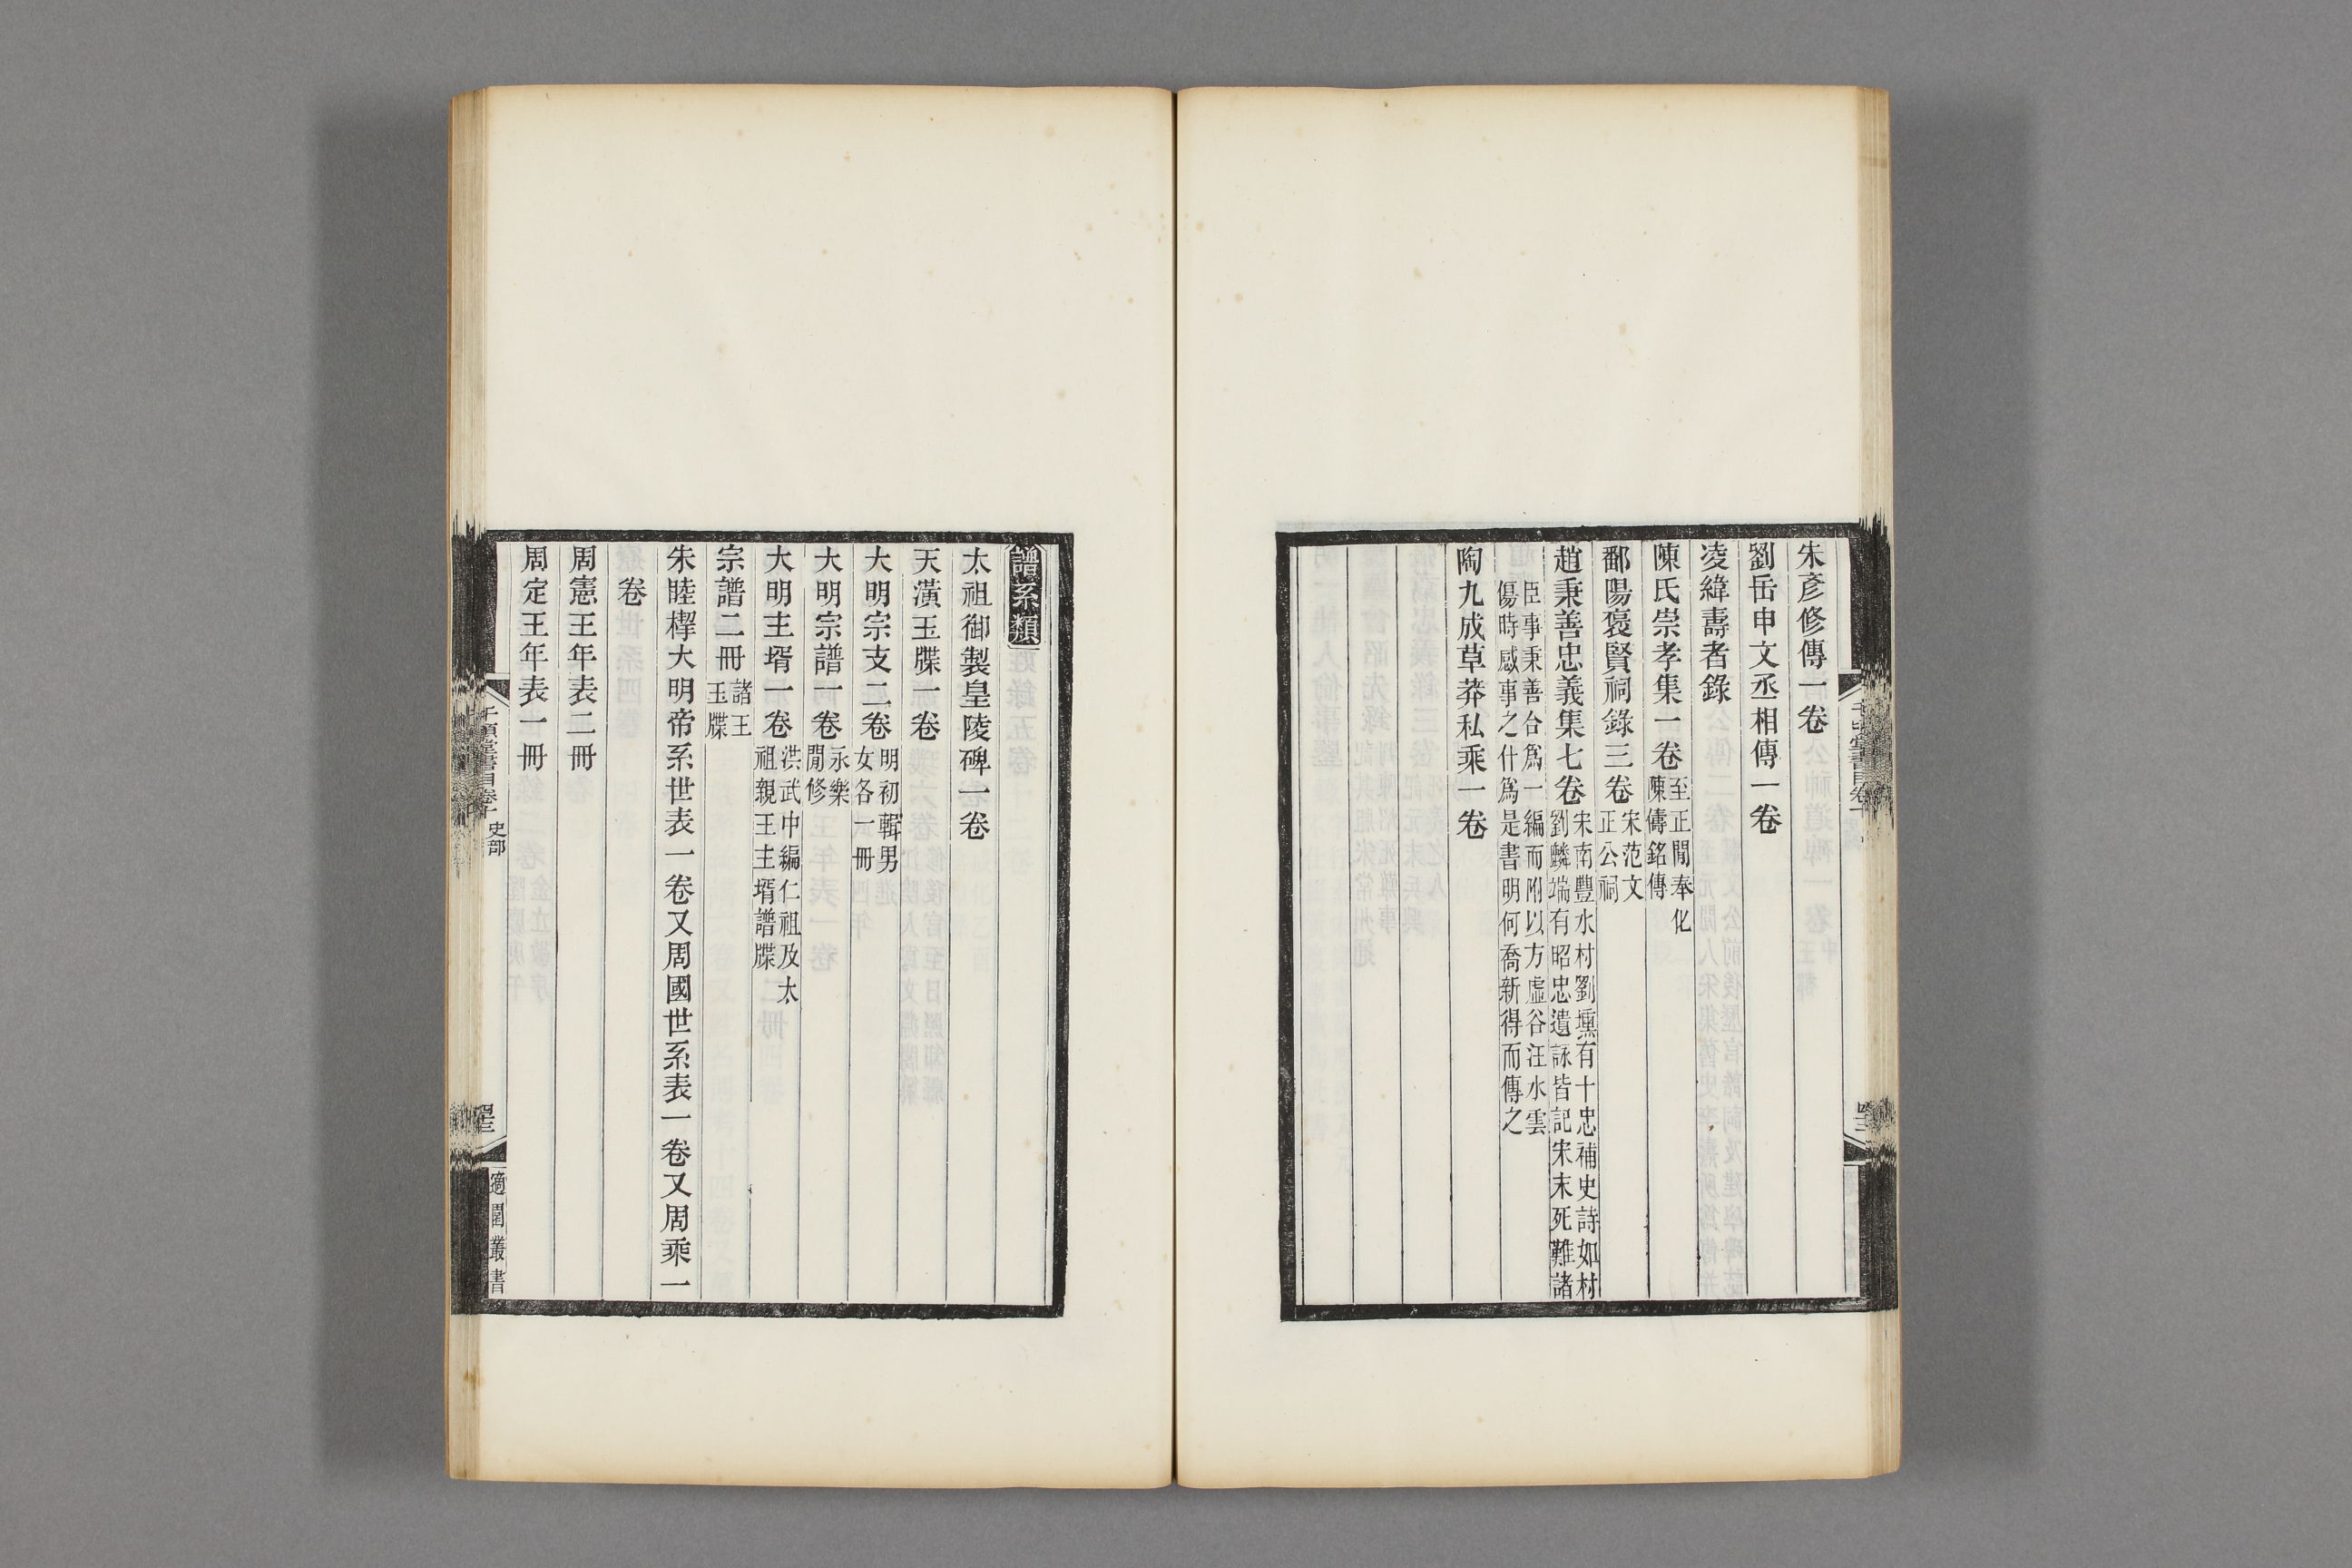 朱彥修傳一卷
劉岳申文丞相傳一卷
凌緯壽者錄
陳氏崇孝集一卷至正閒奉化
陳儔銘傳
鄱陽褒賢祠錄三卷宋范文
正公祠
趙秉善忠義集七卷宋南豐水村劉壎有十忠補史詩如村
劉麟端有昭忠遺詠皆記宋末死難諸
臣事秉善合爲一編而附以方虛谷汪水雲
傷時感事之什爲是書明何喬新得而傳之
陶九成草莽私乘一卷
譜系類
太祖御製皇陵碑一卷
天潢玉牒一卷
大明宗支二卷明初輯男
女各一冊
大明宗譜一卷永樂
閒修
大明主壻一卷洪武中編仁祖及太
祖親王主壻譜牒
宗譜二冊諸王
玉牒
朱睦㮮大明帝系世表一卷又周國世系表一卷又周乘一
卷
周憲王年表二冊
周定王年表一冊
千頃堂書目卷十 史部
適園叢書